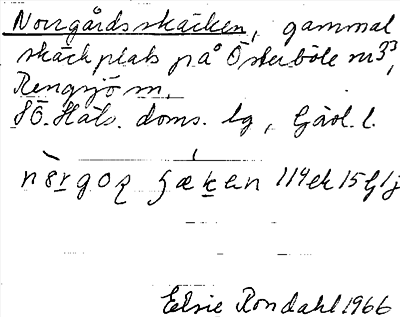 Norrgårdsskäcken, gammal
skäckplats på Österböle m 3³,
Rengsjö sn.
SÖ. Häls. doms. lg, Gävl. l.
nɛ̀rgoʐ ʃækan 114ek15G1j
Elsie Rondahl 1966